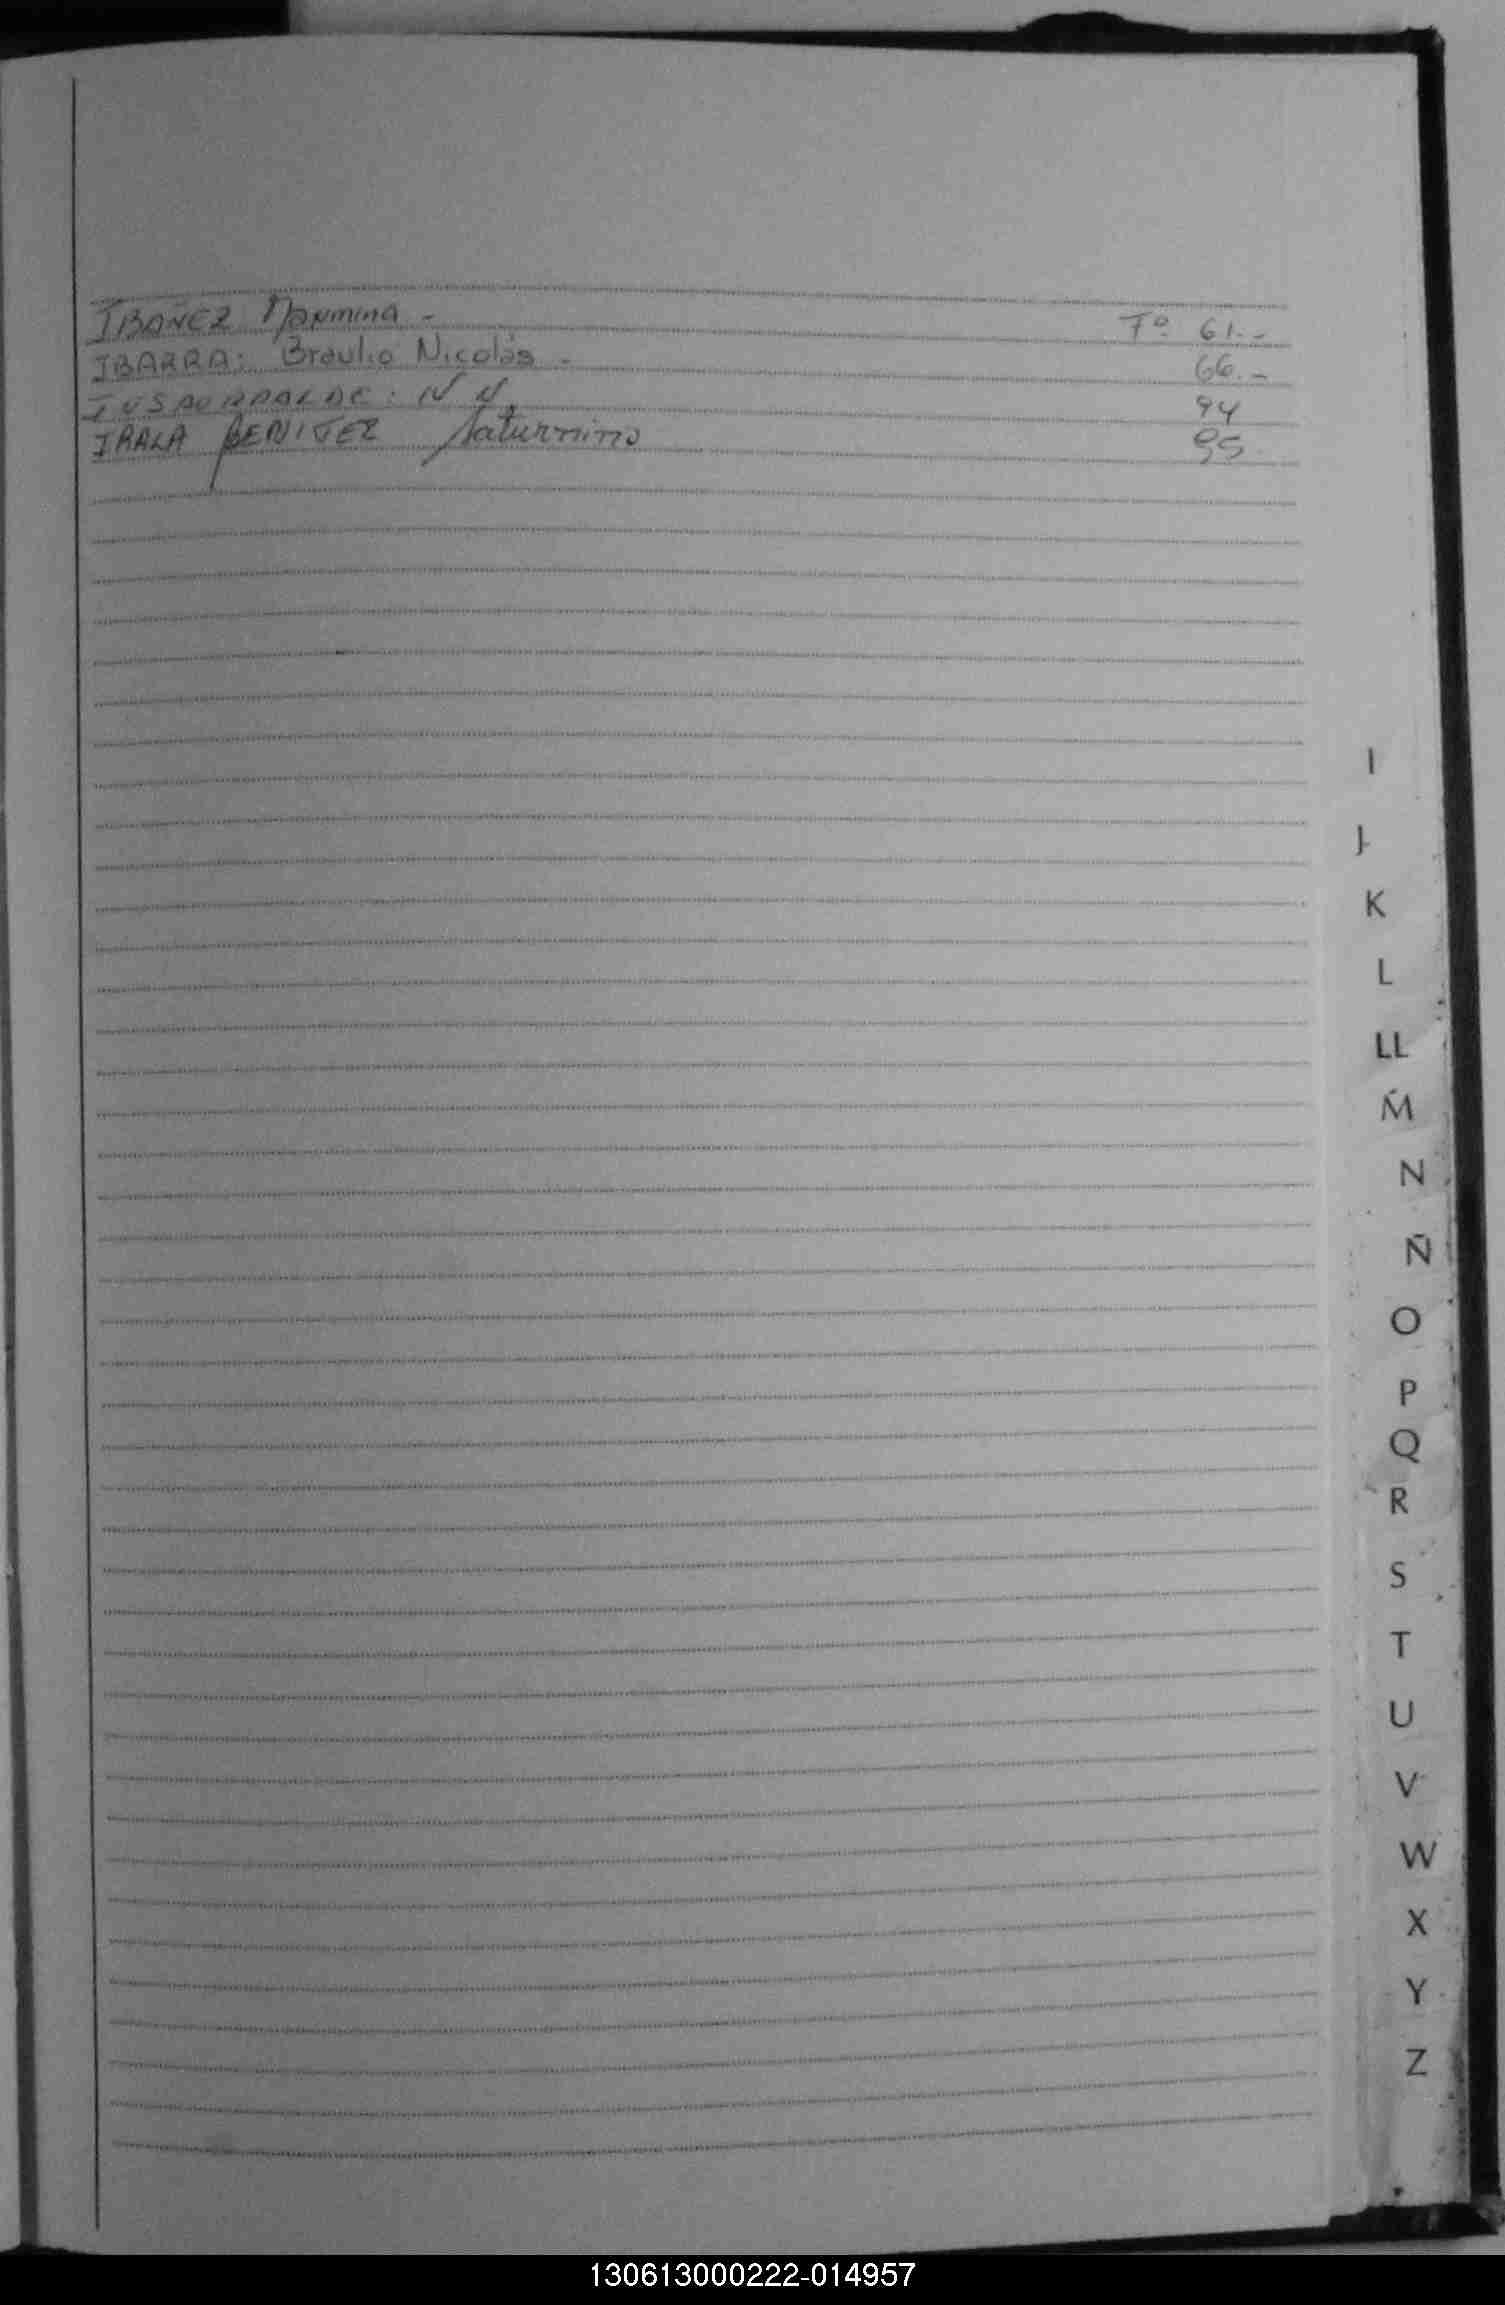 IBAÑEZ Maxmina - Fº 61.-
IBARRA: Braulio Nicolás - 66.-
N N. 94
IRALA BENITEZ Saturnino 95
I
J
K
L
LL
M
N
Ñ
O
P
Q
R
S
T
U
V
W
X
Y
Z
130613000222-014957